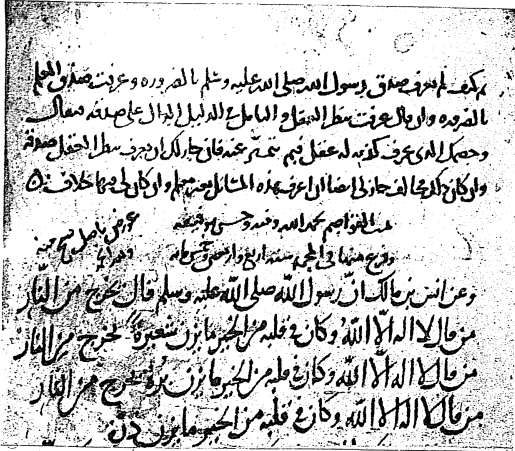 ثم كيف لم تعرف صدق رسول الله صلى الله عليه وسلم بالضروره وعرفت صدق المعلم
بالضروره وان قال عرفت بنظر العقل و التامل في الدليل الدال على صدقه فيقال
وخصمك الذي عرف كونه له عقل فبم تتميز عنه فان جاز لك ان تعرف بنظر العقل صدقه
وان كان خصمك مخالف جاز لي ايضا ان اعرف هذه المسائل بغير معلم وان كان لي فيها خلاف
تمت القواصم بحمد الله وحسن توفيقه
وفرغ منها في سنه اربع وخمس مايه
عورض باصل صحيح
وعن انس بن مالك ان رسول الله صلى الله عليه وسلم قال يخرج من النار
من قال لا اله الا الله وكان في قلبه من الخير ما يزن شعيرة يخرج من النار
من قال لا اله الا الله وكان في قلبه من الخير ما يزن برة يخرج من النار
من قال لا اله الا الله وكان في قلبه من الخير ما يزن ذرة